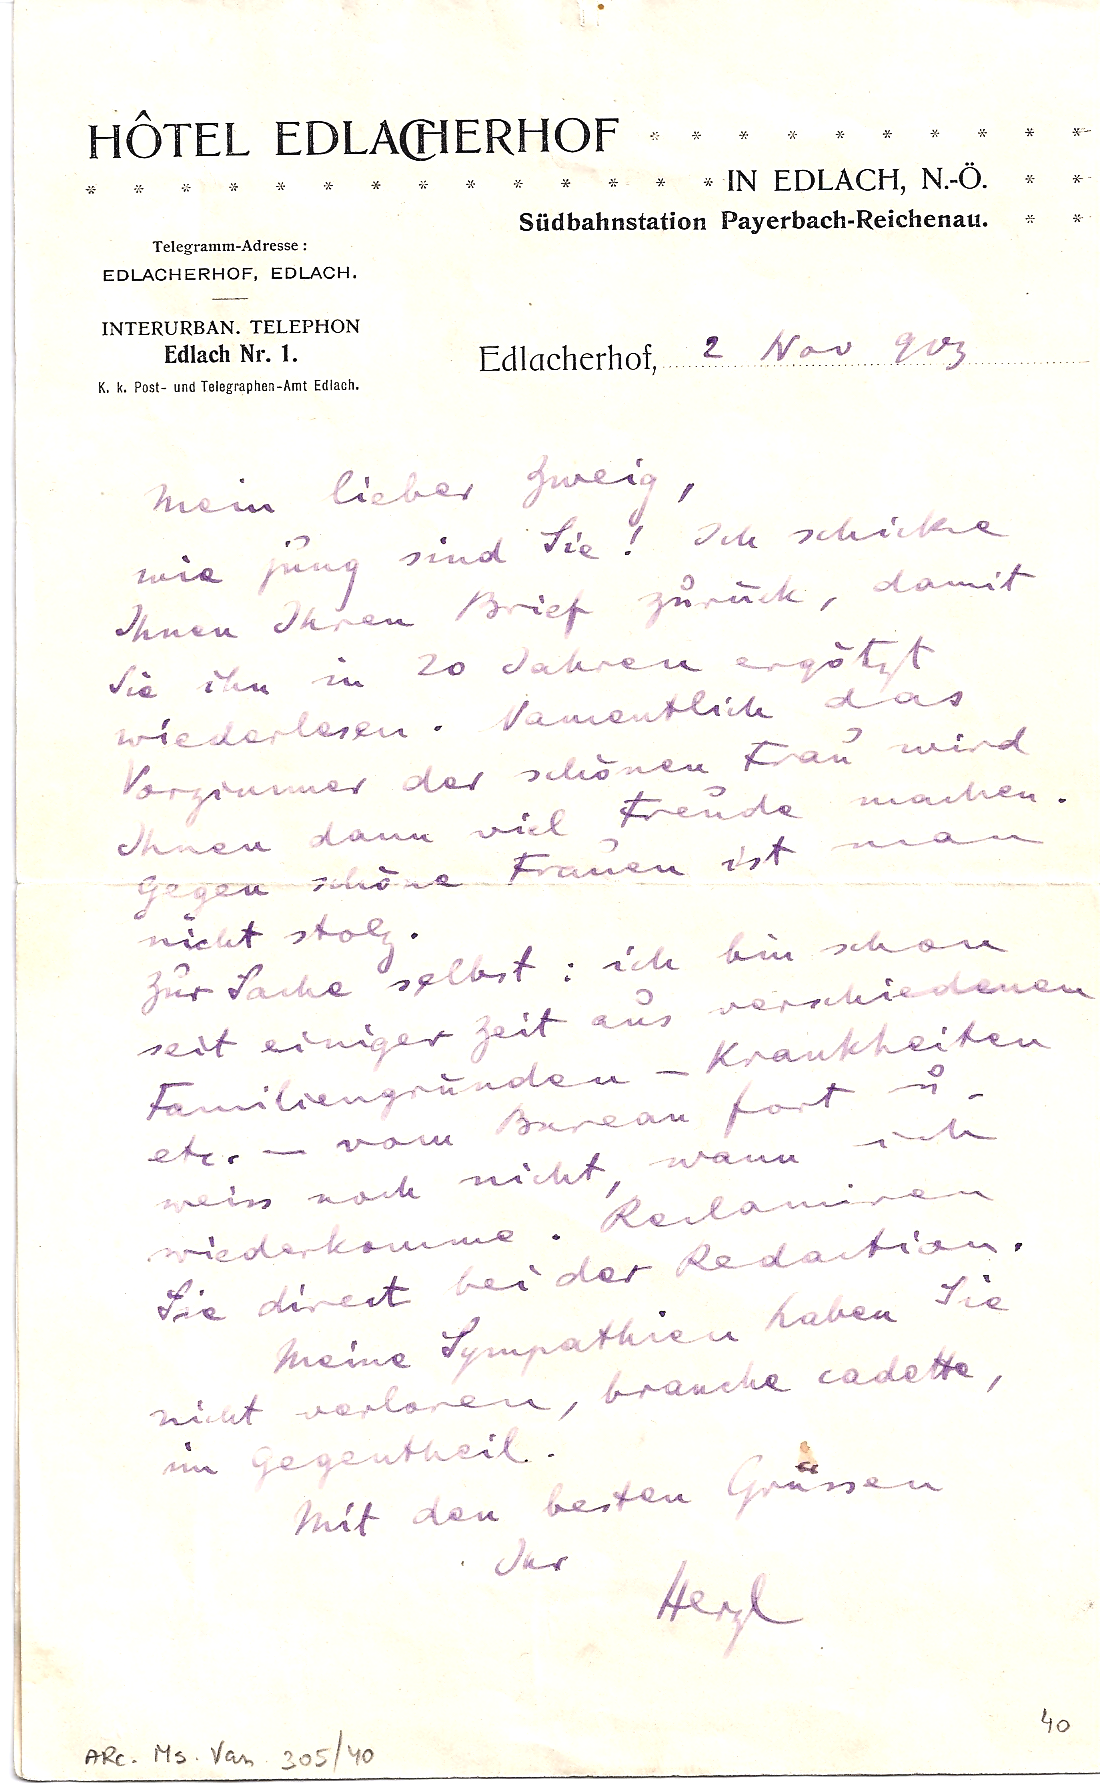 HÔTEL EDLACHERHOF
IN EDLACH, N.-Ö.
Südbahnstation Payerbach-Reichenau.
Telegramm-Adresse:
EDLACHERHOF, EDLACH.
INTERURBAN. TELEPHON
Edlach Nr. 1.
K. k. Post- und Telegraphen-Amt Edlach.
Edlacherhof, 2 Nov 903
Mein lieber Zweig,
wie jung sind Sie! Ich schicke
Ihnen Ihren Brief zurück, damit
Sie ihn in 20 Jahren ergötzt
wiederlesen. Namentlich das
Vorzimmer der schönen Frau wird
Ihnen dann viel Freude machen.
Gegen schöne Frauen ist man
nicht stolz.
Zur Sache selbst: ich bin schon
seit einiger Zeit aus verschiedenen
Familiengründen – Krankheiten
etc. – vom Bureau fort u.
weiss noch nicht, wann ich
wiederkomme. Reclamiren
Sie direct bei der Redaction.
Meine Sympathien haben Sie
nicht verloren, branche cadette,
im Gegentheil.
Mit den besten Grüssen
Ihr
Herzl
40
ARC. Ms. Var. 305/40